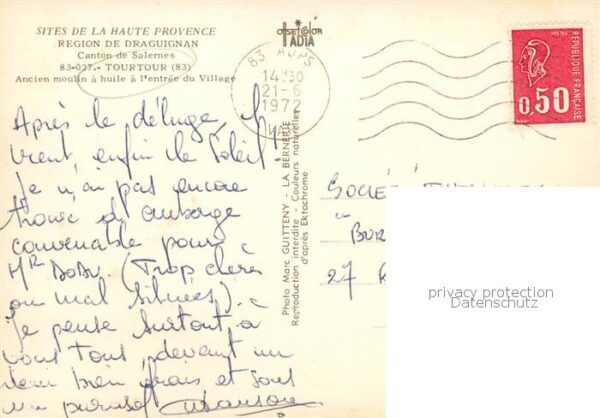 SITES DE LA HAUTE PROVENCE
REGION DE DRAGUIGNAN
Canton de Salernes
83-027.- TOURTOUR (83)
Ancien moulin à huile à l'entrée du Village
offsetcolor
IADIA
83 AUPS
14 30
21-6
1972
VAR
REPUBLIQUE FRANCAISE
0,50
Après le déluge,
vient enfin le soleil!
Je n'ai pas encore
trouvé d'auberge
convenable pour
Mr (Trop chères
ou mal situées).
Je pense surtout à
vous tous, devant un
demi bien frais et sous
un parasol
Photo Marc GUITTENY - LA BERNERIE
Reproduction interdite - Couleurs naturelles
d'après Ektachrome
SOCIÉTÉ
27
privacy protection
Datenschutz